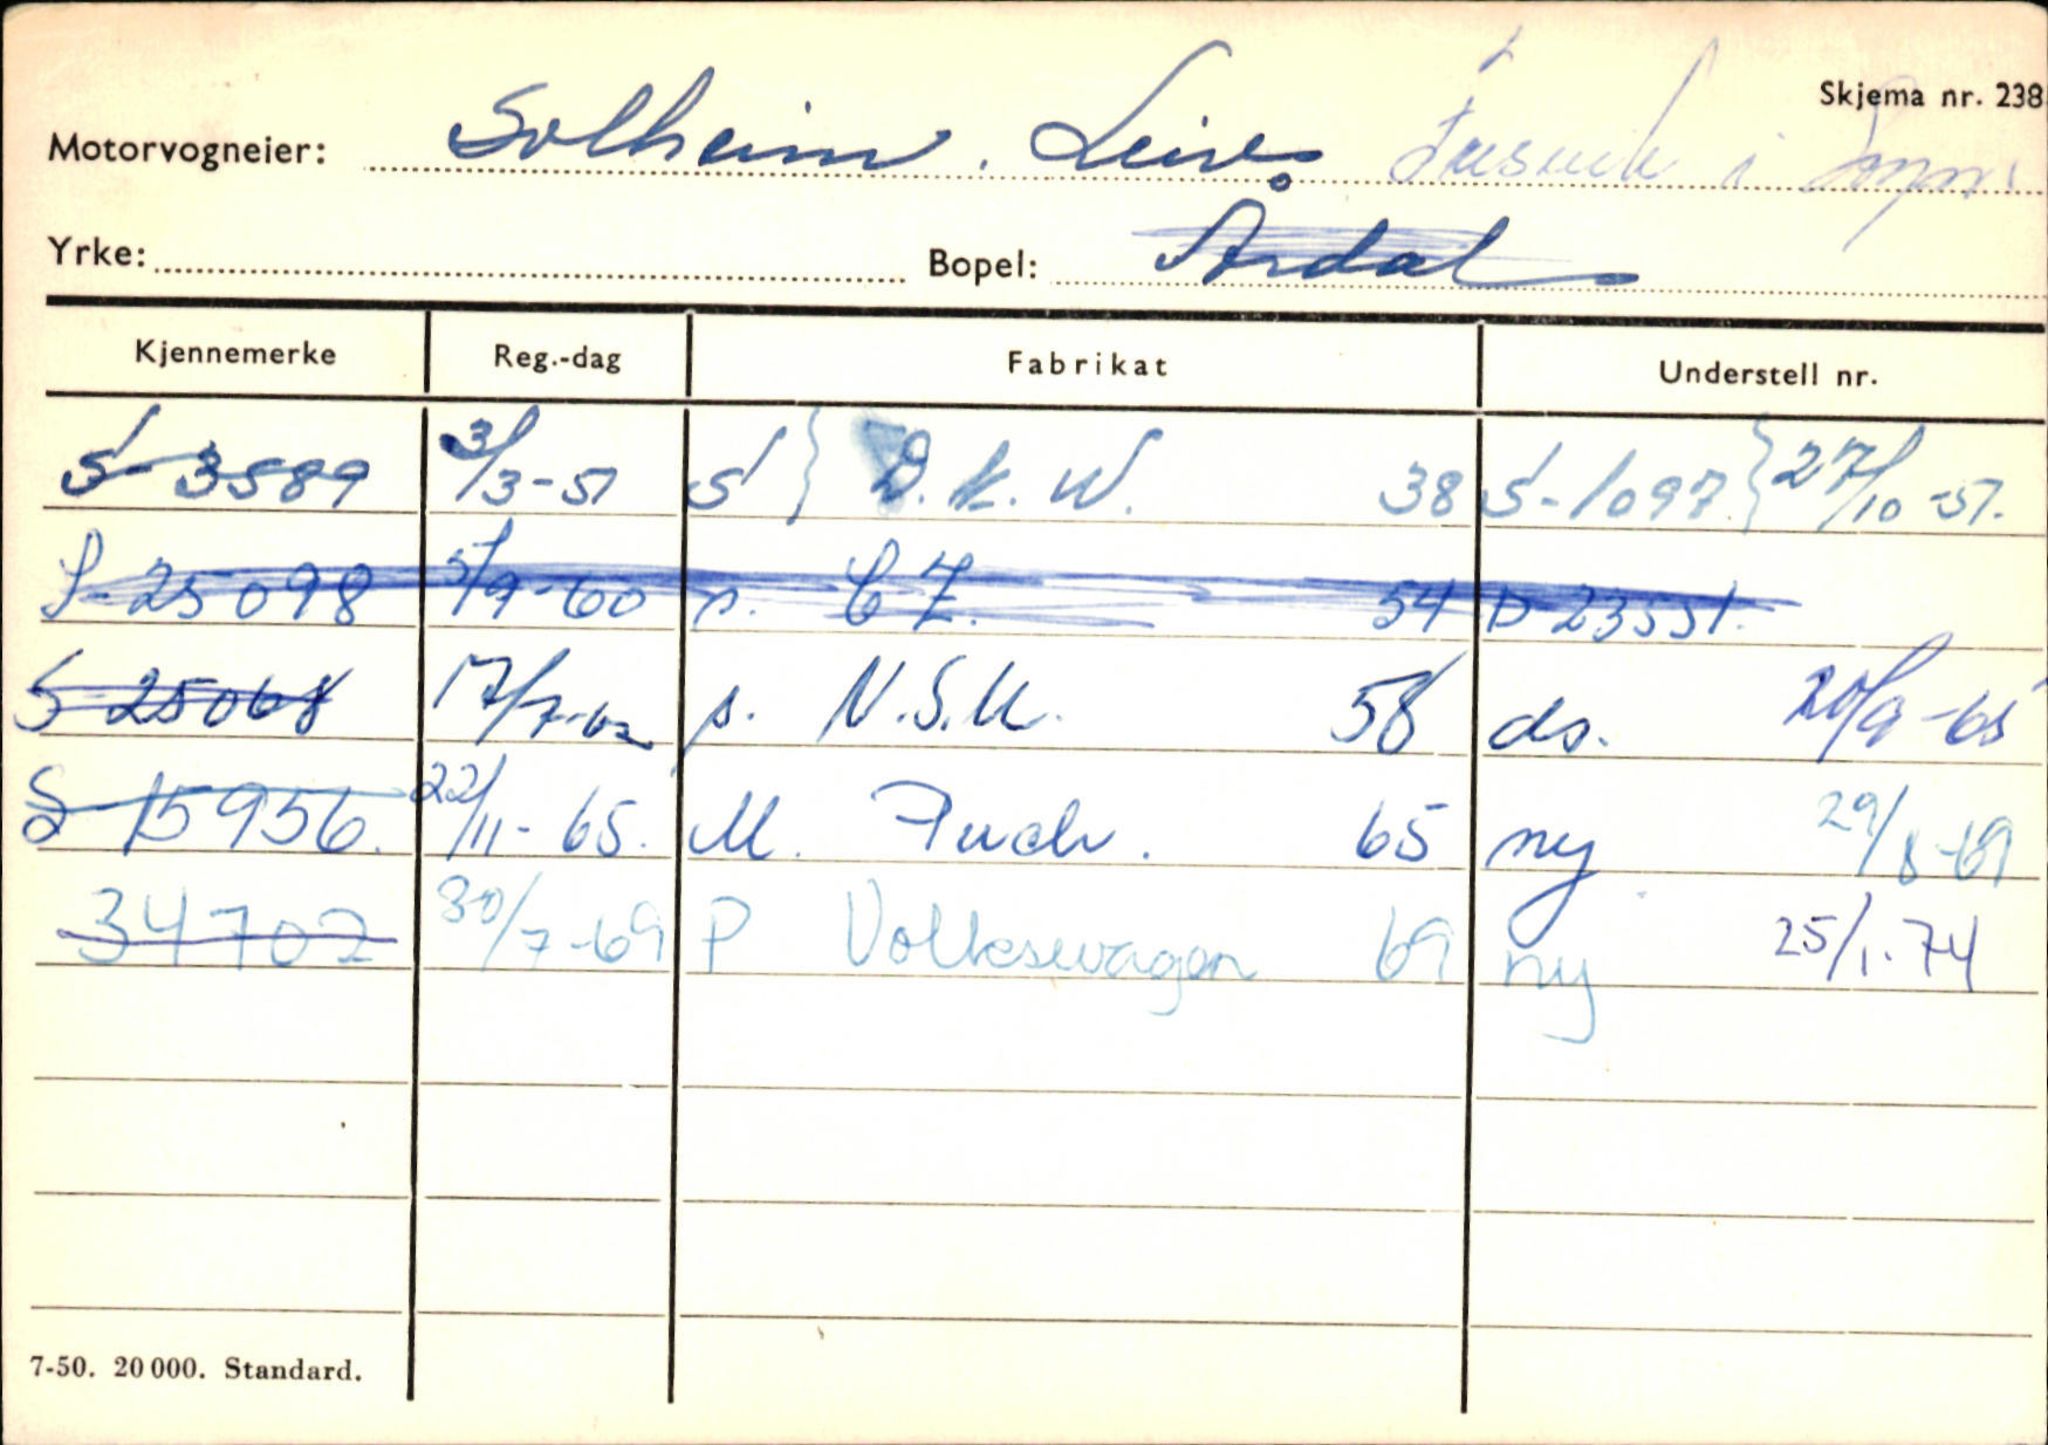 Skjema nr. 238
Motorvogneier: Solheim. Leiv. i
Yrke: Bopel: Årdal
Kjennemerke Reg.-dag Fabrikat Understell nr.
S-3589 3/3-51 S } D.K.W. 38 S-1097 } 27/10-51.
S-25098 5/9-60 s. CZ. 54 D 23551.
S-25068 17/7-62 s. N.S.U. 58 ds. 20/9-65
S-15956. 22/11-65. M. Puch. 65 ny 29/8-69
34702 30/7-69 P Volkswagen 69 ny 25/1.74
7-50. 20 000. Standard.